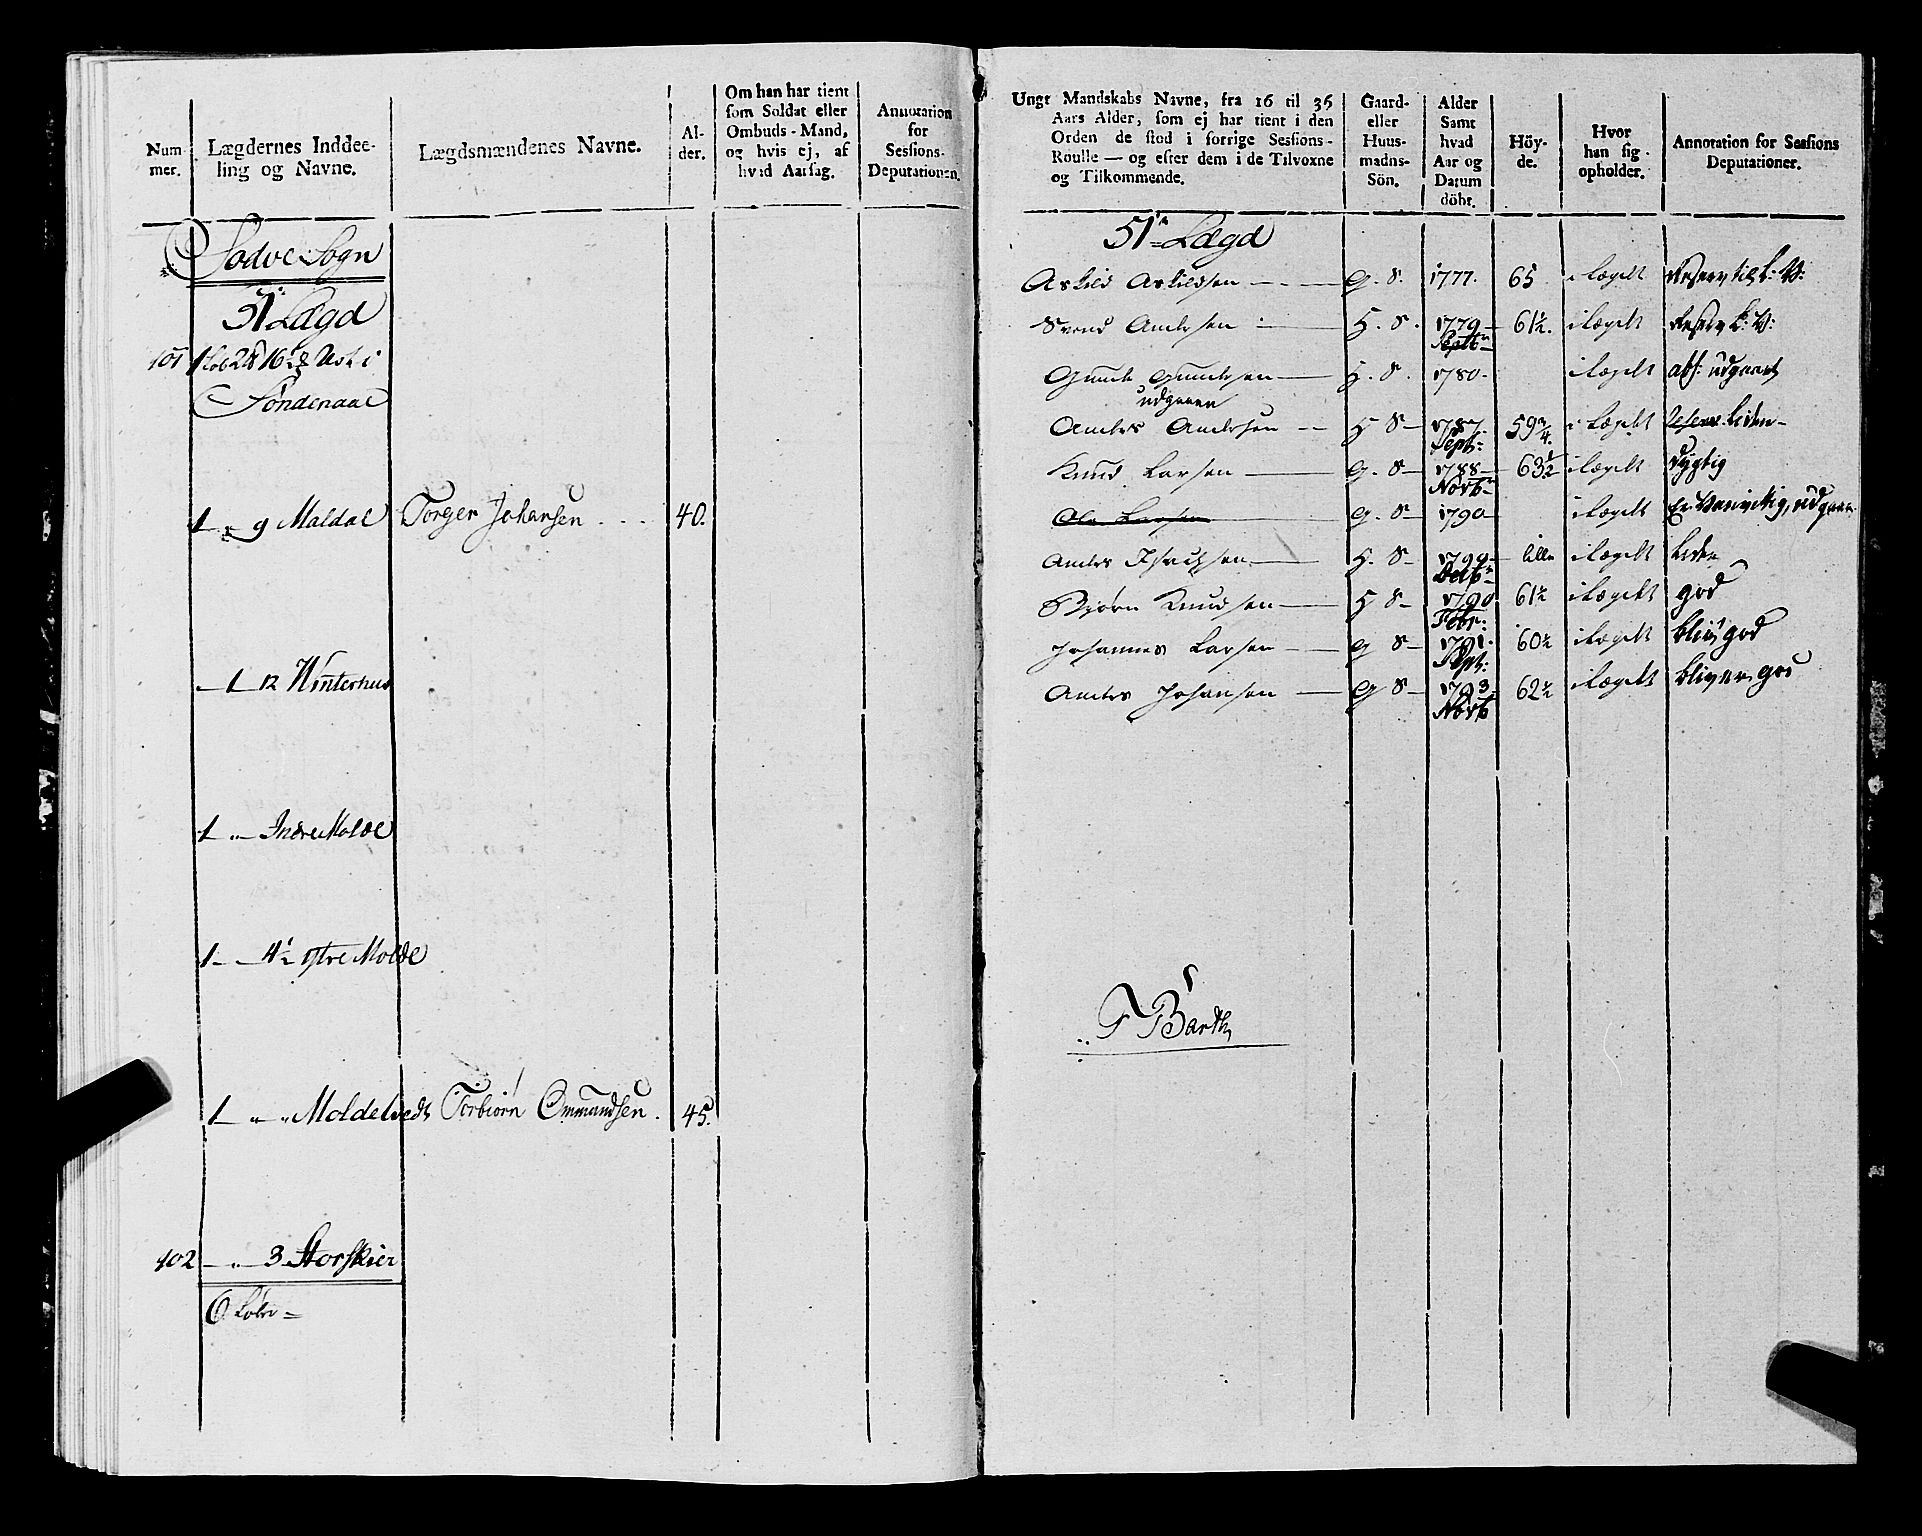 Num-
mer.
Lægdernes Inddee-
ling og Navne.
Lægdsmændenes Navne.
Al-
der.
Om han har tient
som Soldat eller
Ombuds-Mand,
og hvis ej, af
hvad Aarsag.
Annotation
for
Sessions-
Deputationen.
Sodve Sogn
51 Lægd
101 1 Løb 2 16
Söndenaae
1 " 9 Maldal Torger Johansen 40.
1 12 Winterhus
1 " Indre Molde
1 4½ ystre Molde
1 " " Moldetvedt Torbiörn Ommundsen. 45.
102 " 3 Storskier
6 Løber =
Ungt Mandskabs Navne, fra 16 til 36
Aars Alder, som ej har tient i den
Orden de stod i forrige Sessions-
Roulle — og efter dem i de Tilvoxne
og Tilkommende.
Gaard-
eller
Huus-
mands-
Sön.
Alder
Samt
hvad
Aar og
Datum
döbt.
Höy-
de.
Hvor
han sig
opholder.
Annotation for Sessions
Deputationer.
51 Lægd
Askild Askildsen — G. S. 1777. 65 i Lægdt Reserv til L: V:
Svend Andersen — H. S. 1779 61½. i Lægdt Reserv L: V:
Septb
Gunde Gundesen — H. S. 1780 i Lægdt afs: udgaaet
udgaaer
Anders Andersen — H S 1787 59¾. i Lægdt Liden
Sept:
Knud Larsen — G. S 1788 63½ i Lægdt dygtig
Novb
Ole Larsen — G. S 1790 i Lægdt Er Vanvittig, udgaaer
Anders Isachsen — H. S 1790 lille i Lægdt Liden
Decb
Bjørn Knudsen — H S 1790 61½ i Lægdt god
Febr:
Johannes Larsen — G S 1791. 60½ i Lægdt bliv god
Sept:
Anders Johansen — G S 1793 62½ i Lægdt bliver god
Novb
F Barth